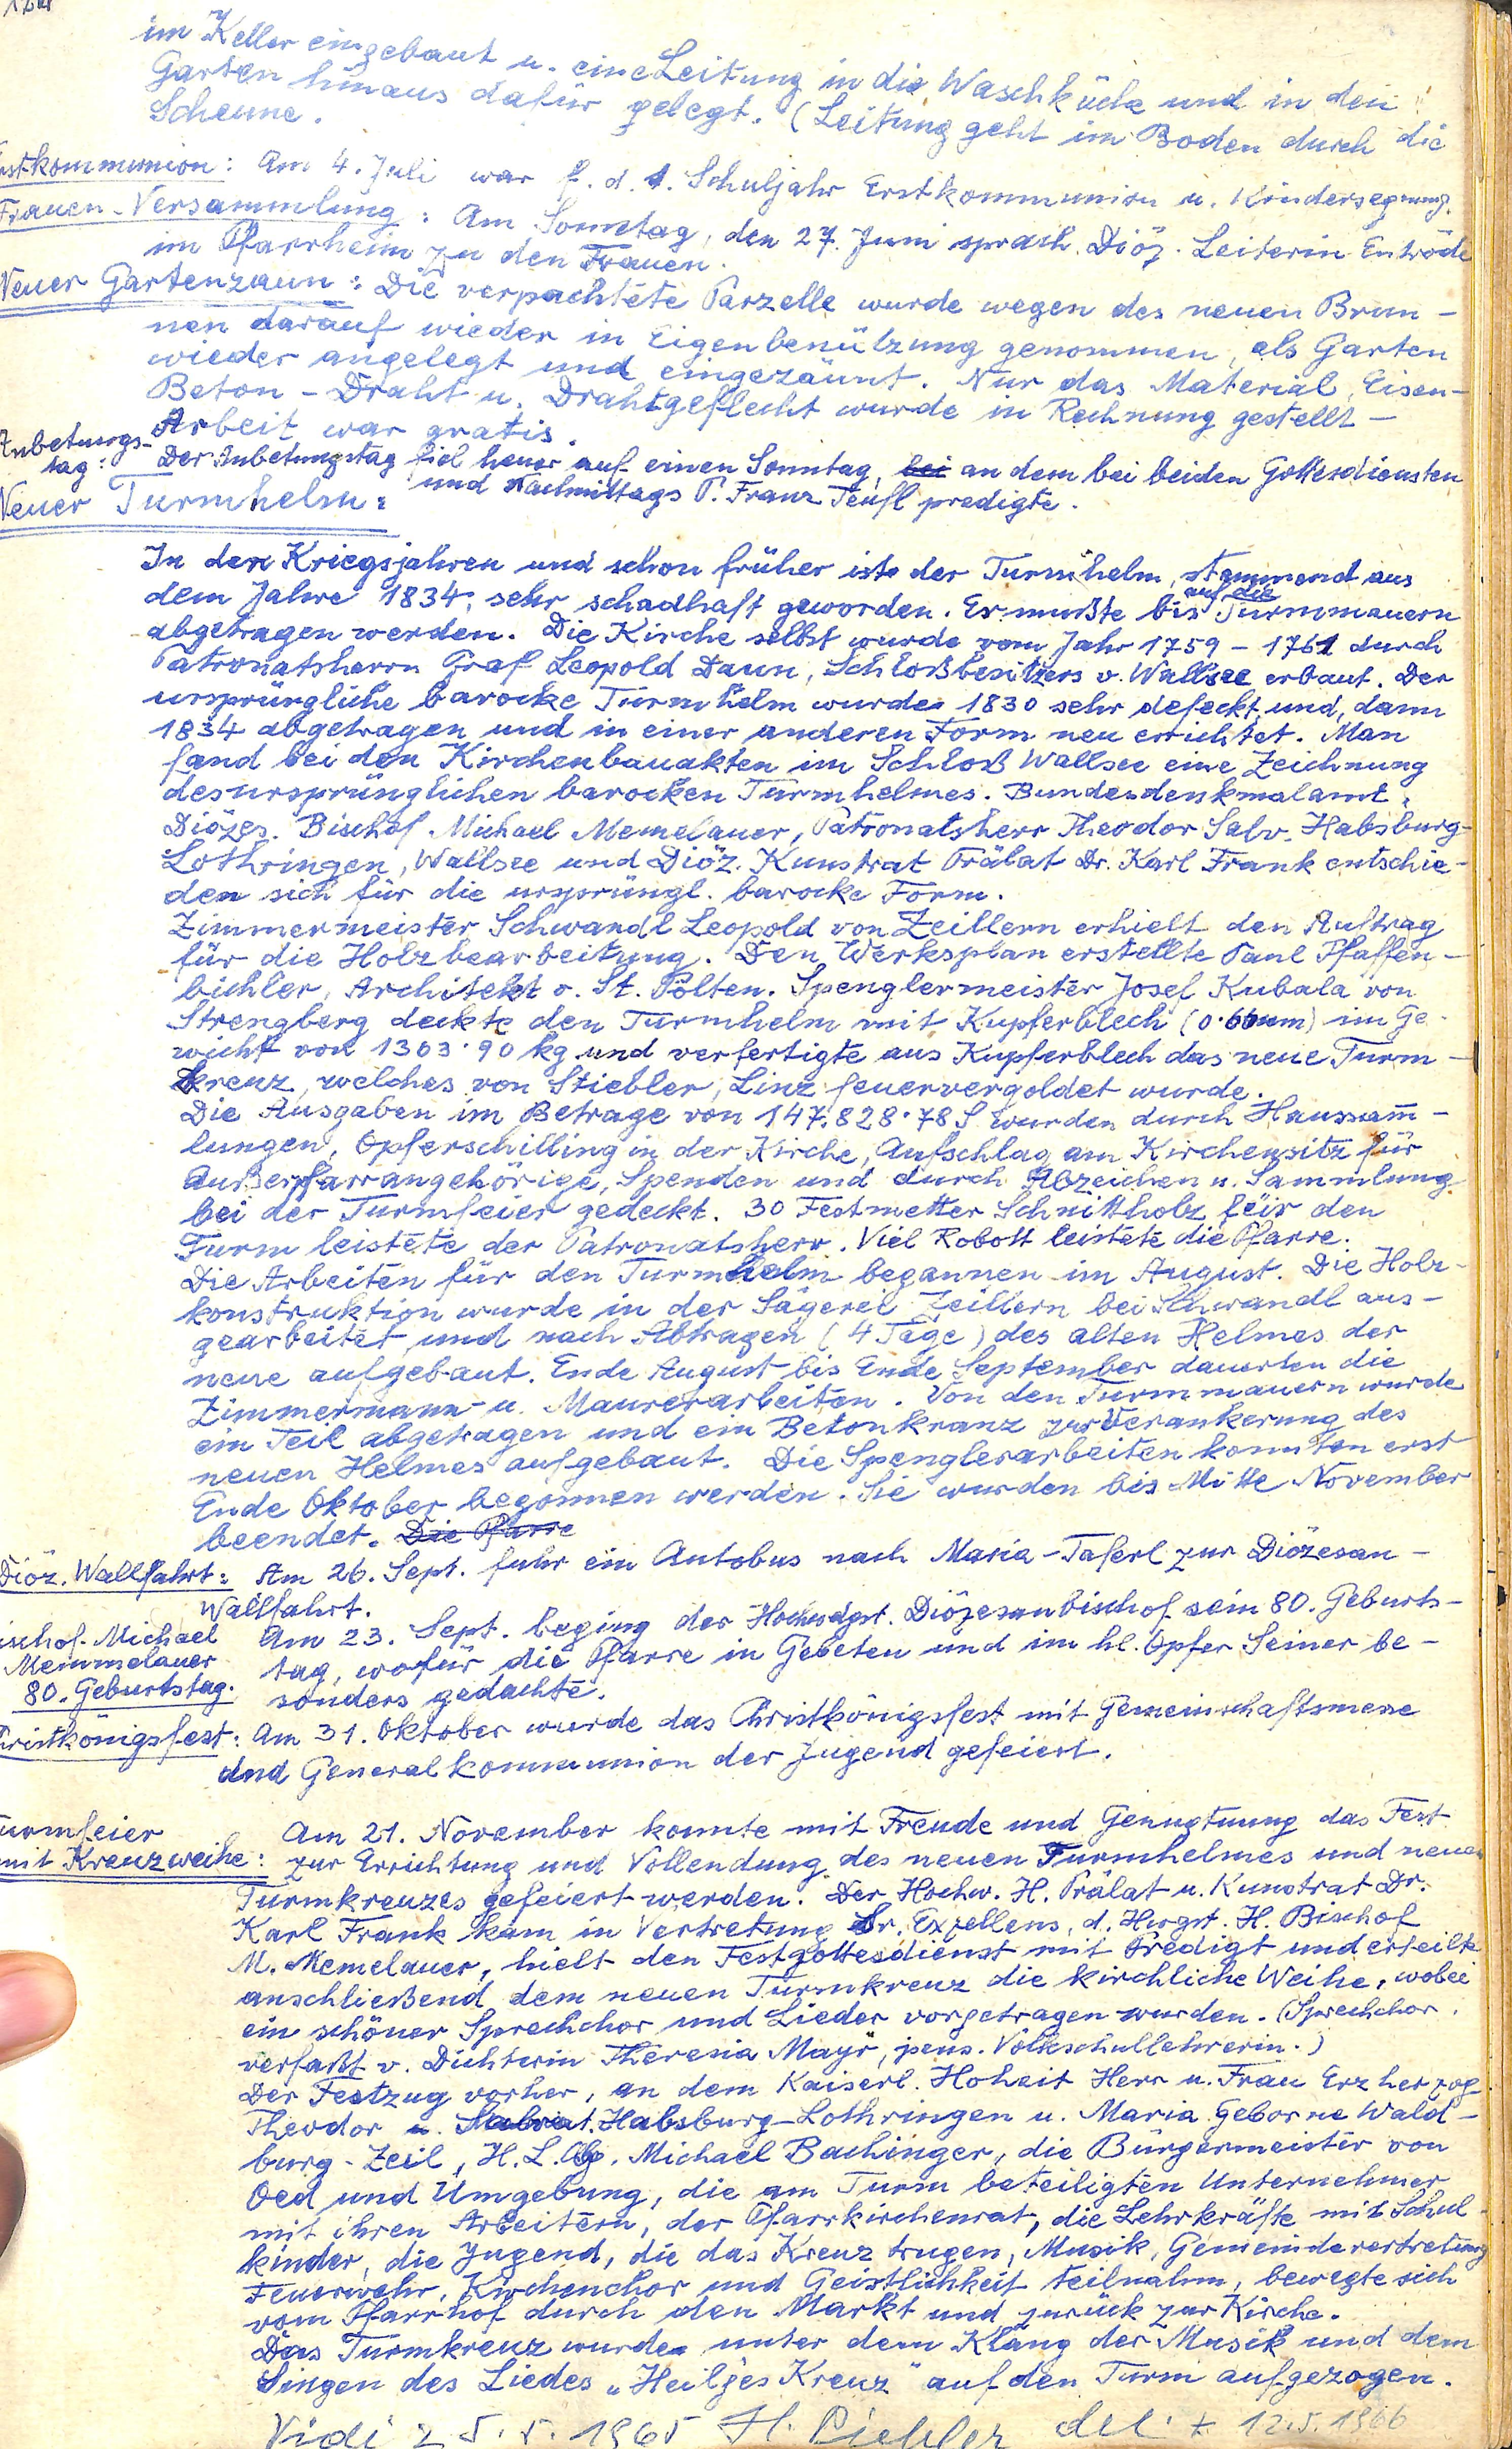 im Keller eingebaut u. eine Leitung in die Waschküche und in den
Garten hinaus dafür gelegt. (Leitung geht im Boden durch die
Scheune.
Erstkommunion: Am 4. Juli war f. d. 1. Schuljahr Erstkommunion u. Kindersegnung.
Frauen-Versammlung: Am Sonntag, den 27. Juni sprach Diöz. Leiterin
im Pfarrheim zu den Frauen.
Neuer Gartenzaun: Die verpachtete Parzelle wurde wegen des neuen Brun-
nen darauf wieder in Eigenbenützung genommen, als Garten
wieder angelegt und eingezäunt. Nur das Material, Eisen-
Beton-Draht u. Drahtgeflecht wurde in Rechnung gestellt -
Arbeit war gratis.
Anbetungs-
tag: Der Anbetungstag fiel heuer auf einen Sonntag, bei an dem bei beiden Gottesdiensten
und Nachmittags P. Franz Teufl predigte.
Neuer Turmhelm:
In den Kriegsjahren und schon früher ist der Turmhelm, stammend aus
dem Jahre 1834, sehr schadhaft geworden. Er mußte bis auf die Turmmauern
abgetragen werden. Die Kirche selbst wurde vom Jahr 1759 - 1761 durch
Patronatsherrn Graf Leopold Daun, Schloßbesitzers v. Wallsee erbaut. Der
ursprüngliche barocke Turmhelm wurde 1830 sehr defeckt und, dann
1834 abgetragen und in einer anderen Form neu errichtet. Man
fand bei den Kirchenbauakten im Schloß Wallsee eine Zeichnung
des ursprünglichen barocken Turmhelmes. Bundesdenkmalamt,
Diözes. Bischof Michael Memelauer, Patronatsherr Theodor Salv. Habsburg-
Lothringen, Wallsee und Diöz. Kunstrat Prälat Dr. Karl Frank entschie-
den sich für die ursprüngl. barocke Form.
Zimmermeister Schwandl Leopold von Zeillern erhielt den Auftrag
für die Holzbearbeitung. Den Werksplan erstellte Paul Pfaffen-
bichler, Architekt v. St. Pölten. Spenglermeister Josef Kubala von
Strengberg deckte den Turmhelm mit Kupferblech (0·66mm) im Ge-
wicht von 1303·90 kg und verfertigte aus Kupferblech das neue Turm-
kreuz, welches von Stiebler, Linz feuervergoldet wurde.
Die Ausgaben im Betrage von 147.828·78 S wurden durch Haussam̄-
lungen, Opferschilling in der Kirche, Aufschlag am Kirchensitz für
Außerpfarrangehörige, Spenden und durch Abzeichen u. Sammlung
bei der Turmfeier gedeckt. 30 Festmetter Schnittholz für den
Turm leistete der Patronatsherr. Viel Robott leistete die Pfarre.
Die Arbeiten für den Turmhelm begannen im August. Die Holz-
konstruktion wurde in der Sägerei Zeillern bei Schwandl aus-
gearbeitet und nach Abtragen (4 Tage) des alten Helmes der
neue aufgebaut. Ende August bis Ende September dauerten die
Zimmermann- u. Maurerarbeiten. Von den Turmmauern wurde
ein Teil abgetragen und ein Betonkranz zur Verankerung des
neuen Helmes aufgebaut. Die Spenglerarbeiten konnten erst
Ende Oktober begonnen werden. Sie wurden bis Mitte November
beendet. Die Pfarre
Diöz. Wallfahrt: Am 26. Sept. fuhr ein Autobus nach Maria-Taferl zur Diözesan-
Wallfahrt.
Bischof Michael
Memmelauer
80. Geburtstag.
Am 23. Sept. beging der Hochwdgst. Diözesanbischof sein 80. Geburts-
tag, wofür die Pfarre in Gebeten und im hl. Opfer Seiner be-
sonders gedachte.
Christkönigsfest: Am 31. Oktober wurde das Christkönigsfest mit Gemeinschaftsmesse
und Generalkommunion der Jugend gefeiert.
Turmfeier
mit Kreuzweihe:
Am 21. November konnte mit Freude und Genugtuung das Fest
zur Errichtung und Vollendung des neuen Turmhelmes und neuen
Turmkreuzes gefeiert werden. Der Hochw. H. Prälat u. Kunstrat Dr.
Karl Frank kam in Vertretung Sr. Exzellens, d. Hwgst. H. Bischof
M. Memelauer, hielt den Festgottesdienst mit Predigt und erteilte
anschließend dem neuen Turmkreuz die kirchliche Weihe, wobei
ein schöner Sprechchor und Lieder vorgetragen wurden. (Sprechchor
verfaßt v. Dichterin Theresia Mayr, pens. Volksschullehrerin.)
Der Festzug vorher, an dem Kaiserl. Hoheit Herr u. Frau Erzherzog
Theodor Habsburg-Lothringen u. Maria geborne Wald-
burg-Zeil, H. L. Abg. Michael Bachinger, die Bürgermeister von
Oed und Umgebung, die am Turm beteiligten Unternehmer
mit ihren Arbeitern, der Pfarrkirchenrat, die Lehrkräfte mit Schul-
kinder, die Jugend, die das Kreuz trugen, Musik, Gemeindevertretung
Feuerwehr, Kirchenchor und Geistlichkeit teilnahm, bewegte sich
vom Pfarrhof durch den Markt und zurück zur Kirche.
Das Turmkreuz wurde unter dem Klang der Musik und dem
Singen des Liedes „Heil'ges Kreuz" auf den Turm aufgezogen.
Vidi 25.5.1965 H. del. + 12.5.1966